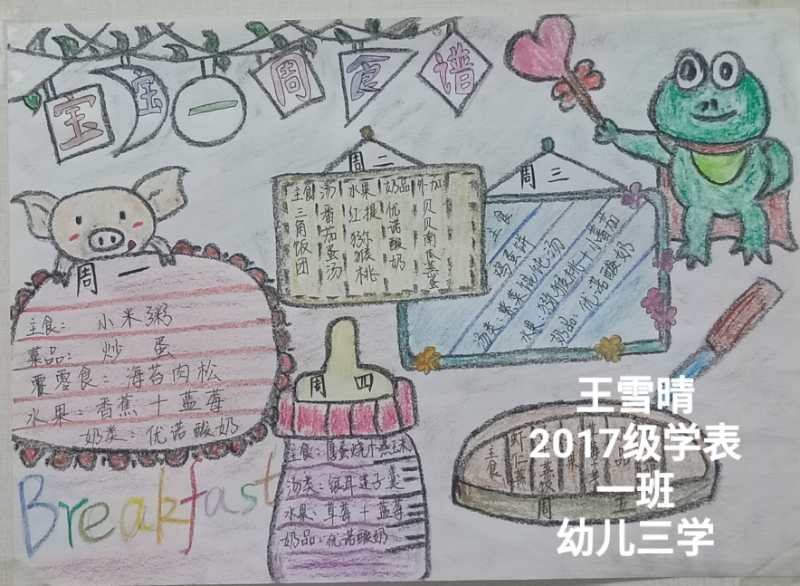 宝宝一周食谱
周一
主食：小米粥
菜品：炒蛋
零食：海苔肉松
水果：香蕉十蓝莓
奶类：优诺酸奶
周二
主食 汤 水果 奶品 外加
三角饭团 番茄蛋汤 红提 猕猴桃 优诺酸奶 贝贝南瓜
周三
主食 鸡蛋饼
汤类：紫菜馄饨汤
水果：猕猴桃十小番茄
奶品：优诺酸奶
周四
汤类：银耳莲子羹
水果：草莓十蓝莓
奶品：优诺酸奶
周五
主食
Breakfast
王雪晴
2017级学表
一班
幼儿三学